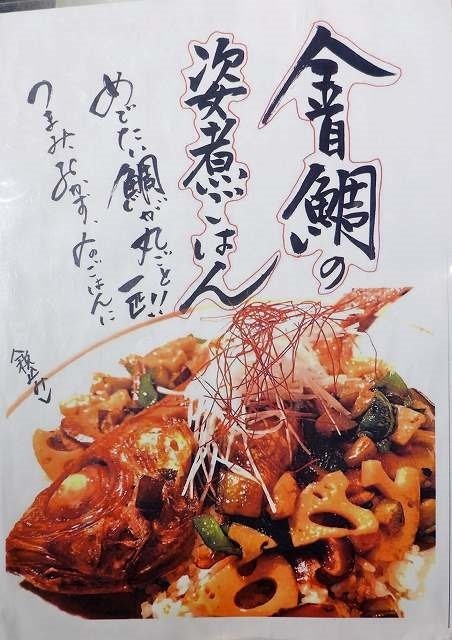 金目鯛の
姿煮ごはん
めでたい鯛が丸ごと一匹!!
つまみ、おかず、〆のごはんに